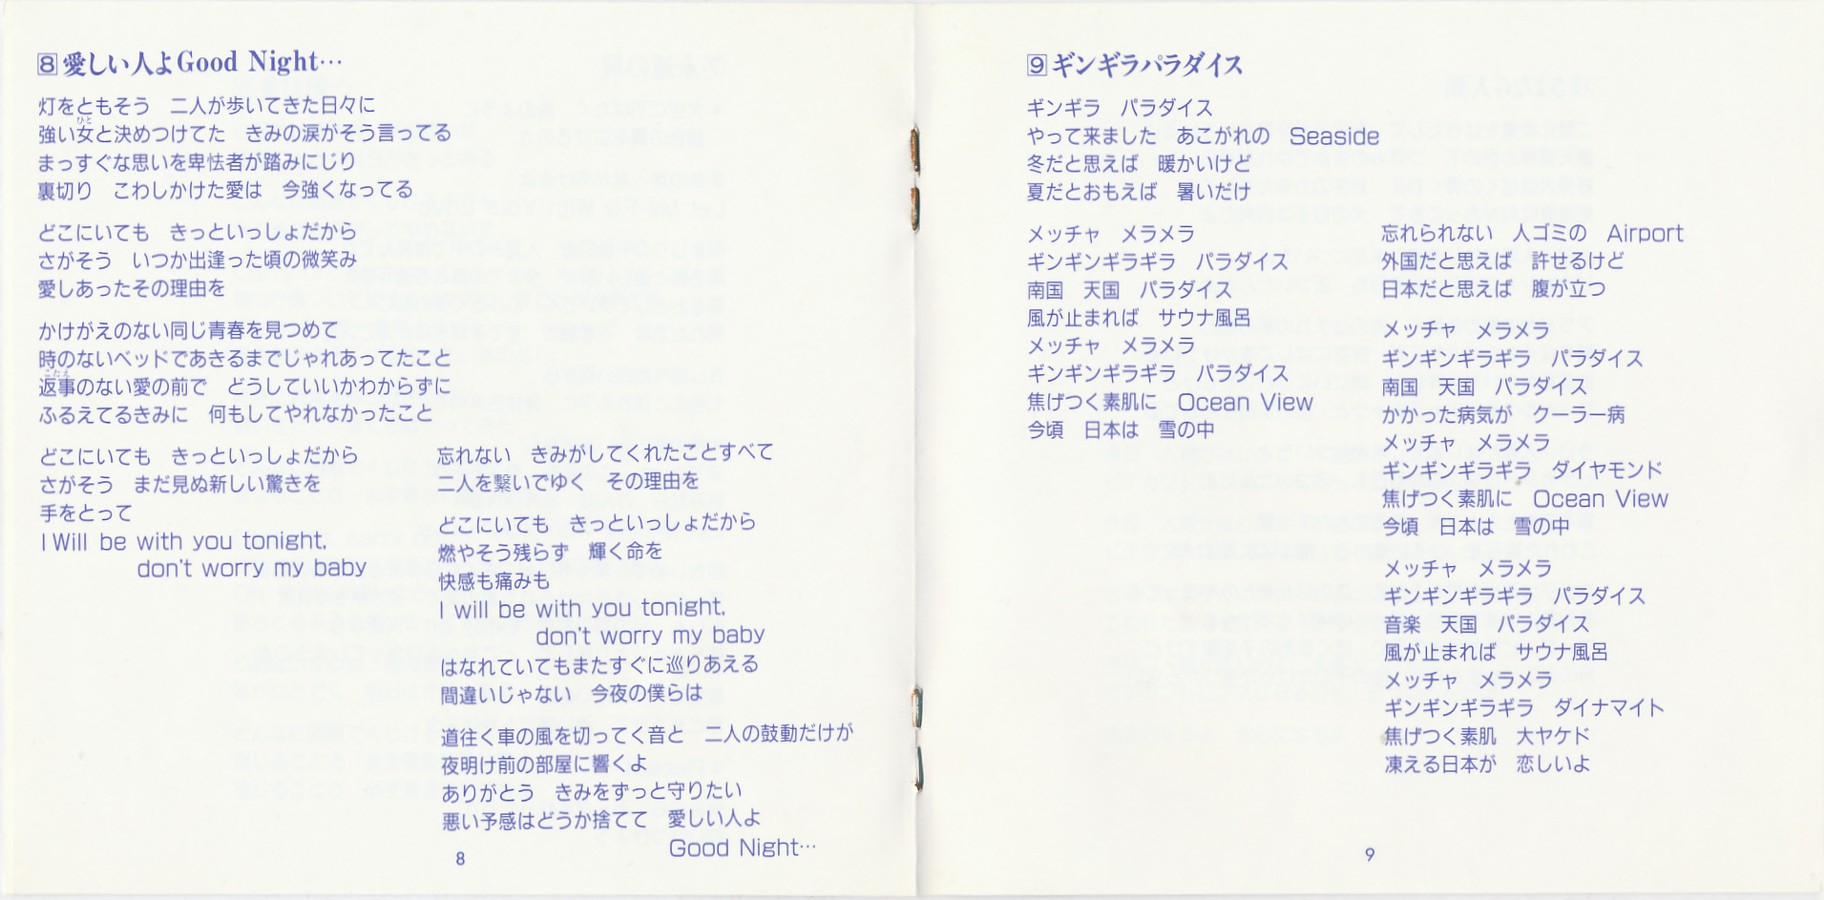 8 愛しい人よGood Night…
灯をともそう　二人が歩いてきた日々に
ひと
強い女と決めつけてた　きみの涙がそう言ってる
まっすぐな思いを卑怯者が踏みにじり
裏切り　こわしかけた愛は　今強くなってる
どこにいても　きっといっしょだから
さがそう　いつか出逢った頃の微笑み
愛しあったその理由を
かけがえのない同じ青春を見つめて
時のないベッドであきるまでじゃれあってたこと
こたえ
返事のない愛の前で　どうしていいかわからずに
ふるえてるきみに　何もしてやれなかったこと
どこにいても　きっといっしょだから
さがそう　まだ見ぬ新しい驚きを
手をとって
I Will be with you tonight,
don't worry my baby
忘れない　きみがしてくれたことすべて
二人を繋いでゆく　その理由を
どこにいても　きっといっしょだから
燃やそう残らず　輝く命を
快感も痛みも
I will be with you tonight,
don't worry my baby
はなれていてもまたすぐに巡りあえる
間違いじゃない　今夜の僕らは
道往く車の風を切ってく音と　二人の鼓動だけが
夜明け前の部屋に響くよ
ありがとう　きみをずっと守りたい
悪い予感はどうか捨てて　愛しい人よ
Good Night…
8
9 ギンギラパラダイス
ギンギラ　パラダイス
やって来ました　あこがれの　Seaside
冬だと思えば　暖かいけど
夏だとおもえば　暑いだけ
メッチャ　メラメラ
ギンギンギラギラ　パラダイス
南国　天国　パラダイス
風が止まれば　サウナ風呂
メッチャ　メラメラ
ギンギンギラギラ　パラダイス
焦げつく素肌に　Ocean View
今頃　日本は　雪の中
忘れられない　人ゴミの　Airport
外国だと思えば　許せるけど
日本だと思えば　腹が立つ
メッチャ　メラメラ
ギンギンギラギラ　パラダイス
南国　天国　パラダイス
かかった病気が　クーラー病
メッチャ　メラメラ
ギンギンギラギラ　ダイヤモンド
焦げつく素肌に　Ocean View
今頃　日本は　雪の中
メッチャ　メラメラ
ギンギンギラギラ　パラダイス
音楽　天国　パラダイス
風が止まれば　サウナ風呂
メッチャ　メラメラ
ギンギンギラギラ　ダイナマイト
焦げつく素肌　大ヤケド
凍える日本が　恋しいよ
9